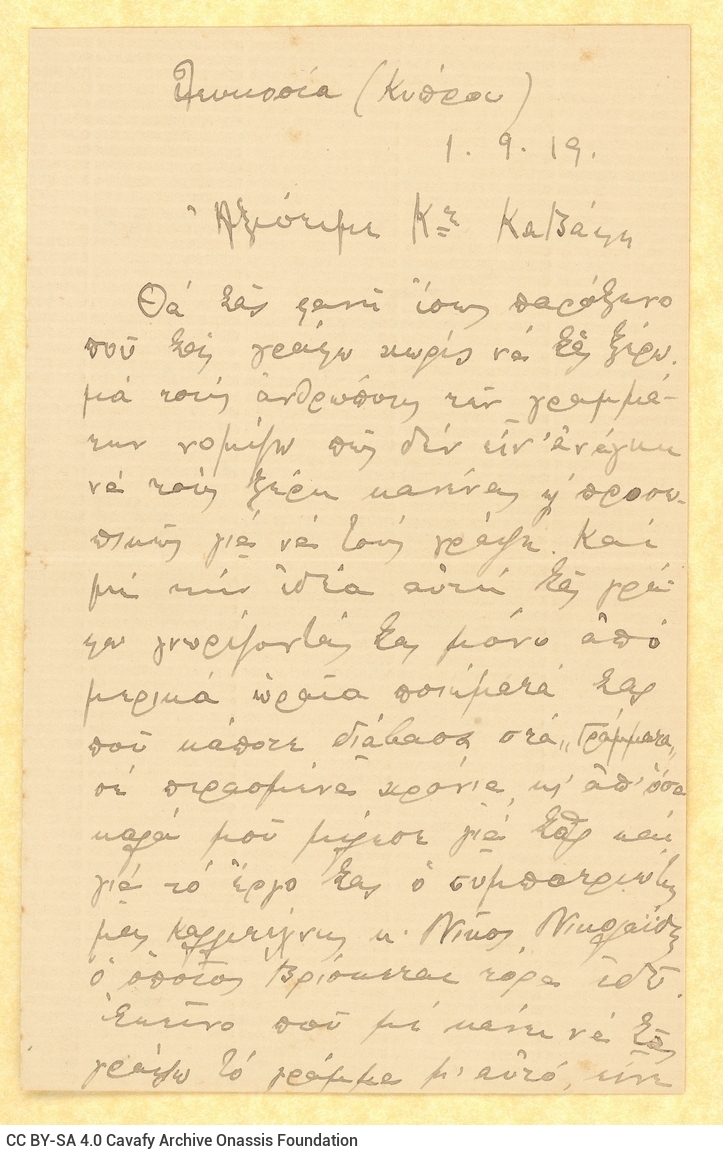 Λευκοσία (Κύπρου)
1. 9. 19.
Ἀξιότιμε Κε Καβάφη
Θά Σᾶς φανῆ ἴσως παράξενο
ποῦ Σᾶς γράφω χωρίς νά Σᾶς ξέρω.
μά τούς ἀνθρώπους τῶν γραμμά-
των νομίζω πῶς δέν εἶν' ἀνάγκη
νά τούς ξέρη κανένας κι' προσω-
πικῶς γιά νά τούς γράψη. Καί
μέ τήν ἰδέα αὐτή Σᾶς γρά-
φω γνωρίζοντάς Σας μόνο ἀπό
μερικά ὡραῖα ποιήματά Σας
ποῦ κάποτε διάβασα στά „Γράμματα„
σέ περασμένα χρόνια, κι' ἀπ' ὅσα
καλά μοῦ μίλησε γιά Σᾶς καί
γιά τό ἔργο Σας ὁ συμπατριώτης
μας καλλιτέχνης κ. Νῖκος Νικολαΐδης
ὁ ὁποῖος βρίσκεται τώρα ἐδῶ.
Ἐκεῖνο ποῦ μέ κάνει νά Σᾶς
γράψω τό γράμμα μ' αὐτό, εἶνε
CC BY-SA 4.0 Cavafy Archive Onassis Foundation